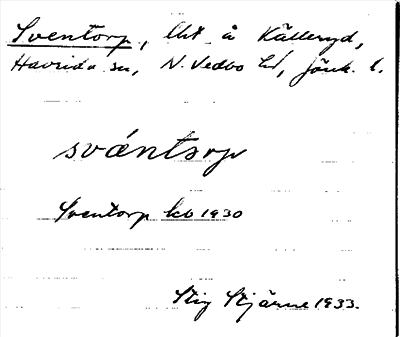 Sventorp, lht å Källeryd,
Haurida sn, N. Vedbo hd, Jönk. l.
svántsrp
Sventorp kb 1930
Stig Stjärne 1933.